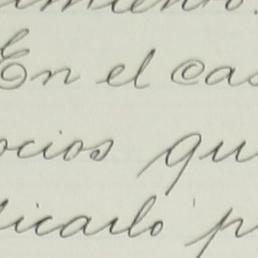 imiento.
En el cas
ocios qu
ficarlo p